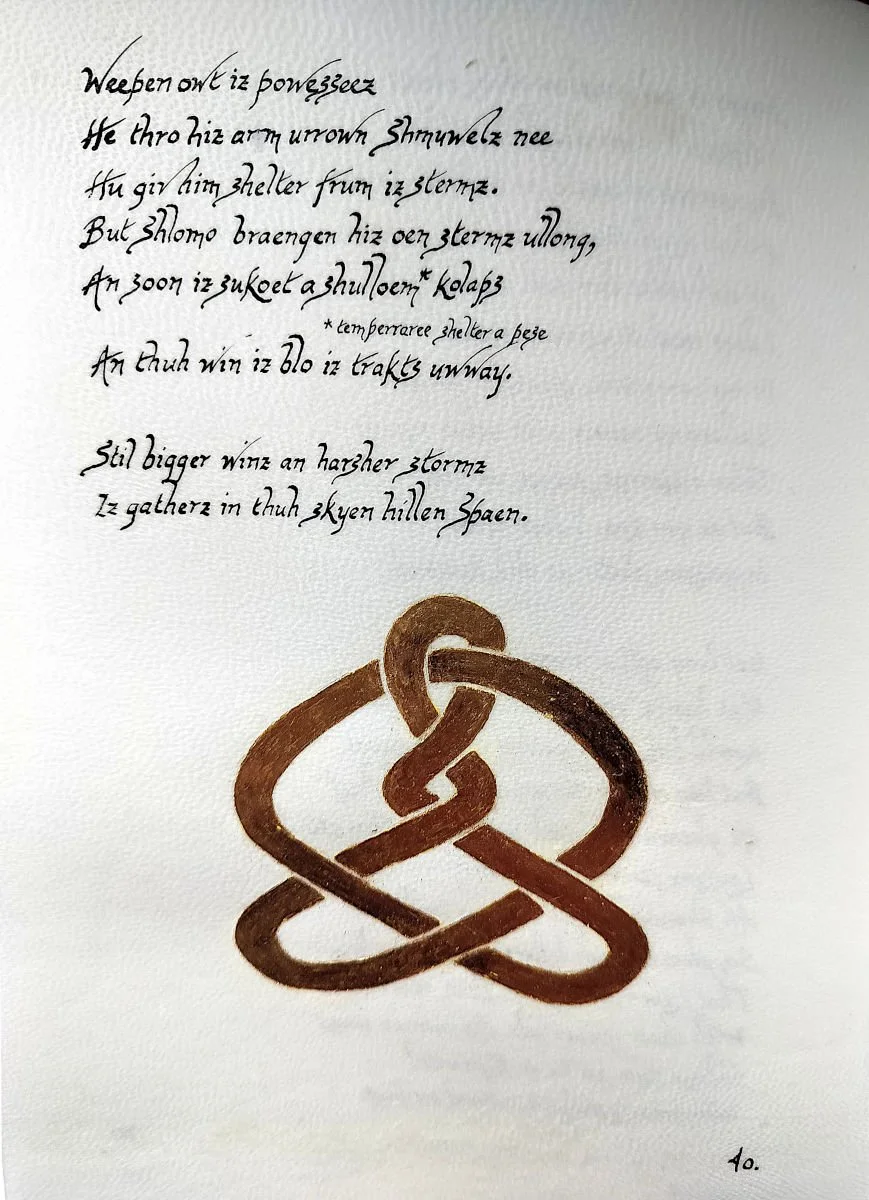 Weepen owt iz powęsseez
He thro hiz arm urrown Shmuwelz nee
Hu giv him shelter frum iz stermz.
But Shlomo braengen hiz oen stermz ullong,
An soon iz sukoet a shulloem* kolaps
* temperraree shelter a pese
An thuh win iz blo iz trakts uwway.
Stil bigger winz an harsher stormz
Iz gatherz in thuh skyen hillen Spaen.
40.